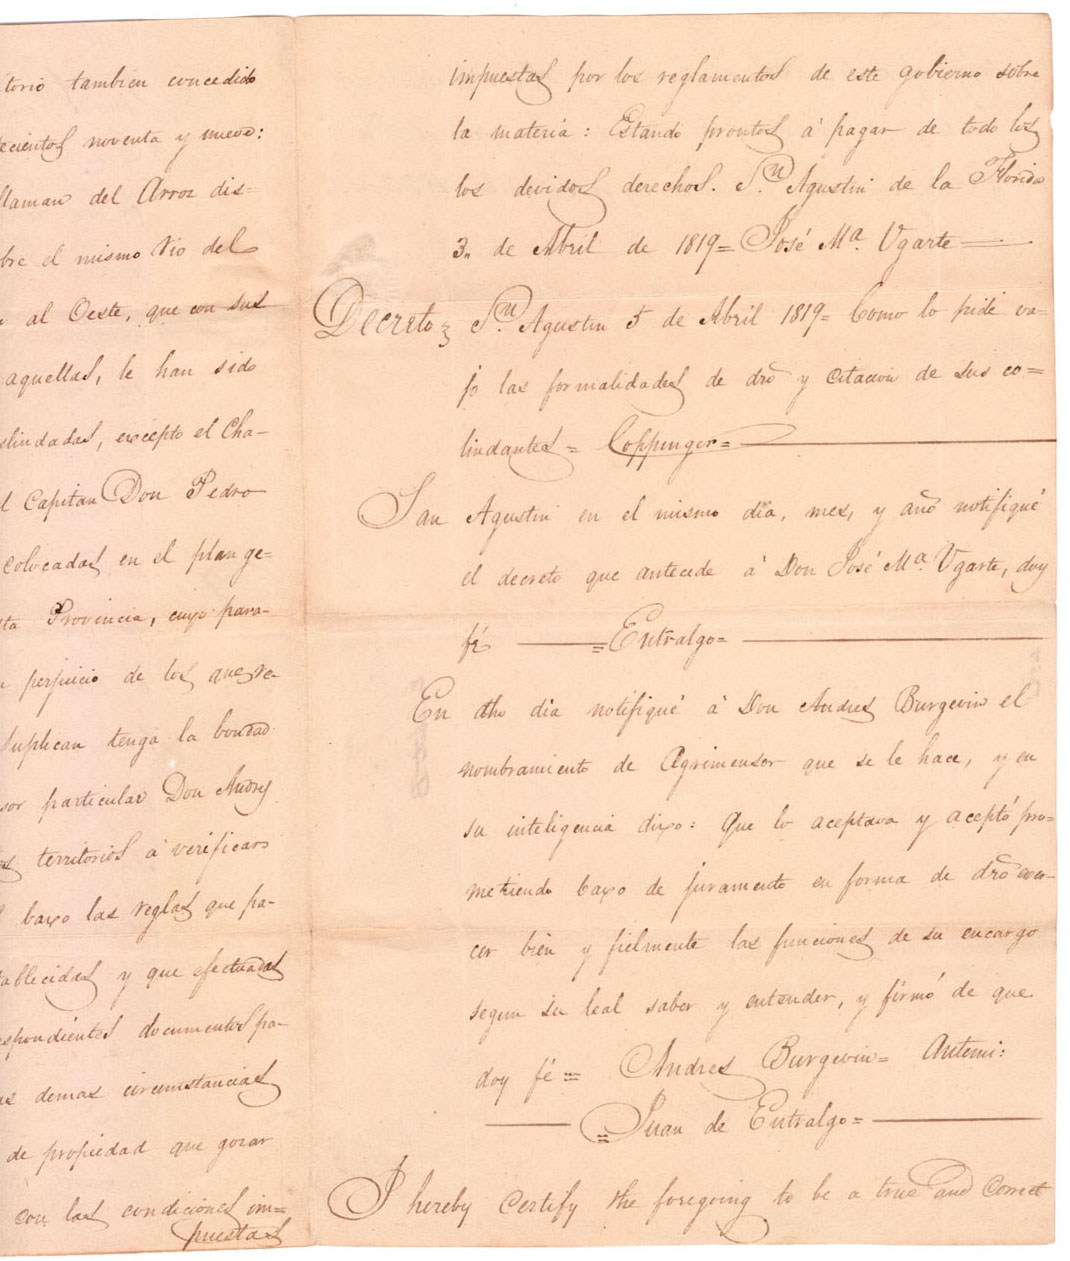 torio tambien concedido
ecientos noventa y nueve:
llaman del Arroz dis-
bre el mismo rio del
al Oeste, que con sus
aquellas, le han sido
slindadas, excepto el Cha-
l Capitan Don Pedro
colocadas en el plan ge-
sta Provincia, cuyo para-
perjuicio de los que re-
Suplican tenga la bondad
sor particular Don Andres
os territorios á verificar
baxo las reglas que pa-
tablecidas y que efectuadas
espondientes documentos pa-
as demas circunstancias
de propiedad que gozar
con las condiciones im=
puestas
impuestas por los reglamentos de este gobierno sobre
la materia: Estando prontos á pagar de todo los
los devidos derechos. Sn. Agustin de la Florida
3„ de Abril de 1819= José Ma. Ugarte
Decreto Sn. Agustin 5 de Abril 1819= Como lo pide va-
jo las formalidades de dro y citacion de sus co=
lindantes= Coppinger=
San Agustin en el mismo dia, mes, y año notifiqué
el decreto que antecede á Don José Ma. Ugarte, doy
fé =Entralgo=
En dho dia notifiqué á Don Andres Burgevin el
nombramiento de Agrimensor que se le hace, y en
su inteligencia dixo: Que lo aceptava y aceptó pro-
metiendo baxo de juramento en forma de dro exer-
cer bien y fielmente las funciones de su encargo
segun su leal saber y entender, y firmó de que
doy fé= Andres Burgevin= Antemi:
=Juan de Entralgo=
I hereby certify the foregoing to be a true and correct